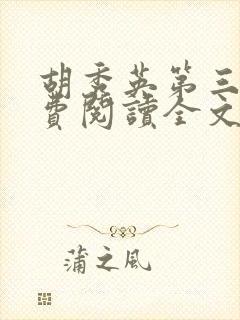 胡秀英第三
费閱讀全文
蒲之风